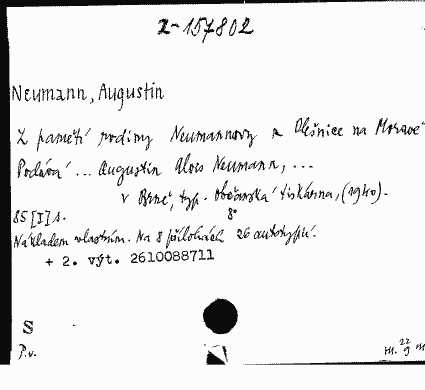 2-157802
Neumann, Augustin
Z pamětí rodiny Neumannovy z Olešnice na Moravě
Podává ... Augustin Alois Neumann, ...
V Brně, typ. Občanská tiskárna, (1940).
85 [I] s. 8°
Nákladem vlastním. Na 8 přílohách 26 autotypií.
+ 2. výt. 2610088711
S
P.v.
22
9